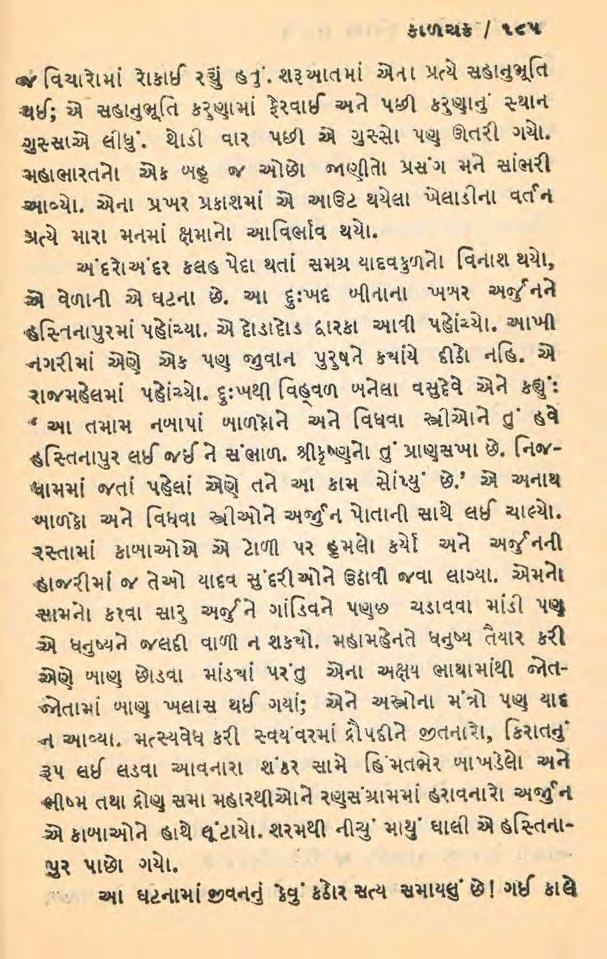 કાળચક્ર / ૧૮૫
જ વિચારોમાં રોકાઈ રહ્યું હતું. શરૂઆતમાં એના પ્રત્યે સહાનુભૂતિ
થઈ; એ સહાનુભૂતિ કરુણામાં ફેરવાઈ અને પછી કરુણાનું સ્થાન
ગુસ્સાએ લીધું. થોડી વાર પછી એ ગુસ્સો પણ ઊતરી ગયો.
મહાભારતનો એક બહુ જ ઓછો જાણીતો પ્રસંગ મને સાંભરી
આવ્યો. એના પ્રખર પ્રકાશમાં એ આઉટ થયેલા ખેલાડીના વર્તન
પ્રત્યે મારા મનમાં ક્ષમાનો આવિર્ભાવ થયો.
અંદરોઅંદર કલહ પેદા થતાં સમગ્ર યાદવકુળનો વિનાશ થયો,
એ વેળાની એ ઘટના છે. આ દુઃખદ બીનાના ખબર અર્જુનને
હસ્તિનાપુરમાં પહોંચ્યા. એ દોડાદોડ દ્વારકા આવી પહોંચ્યો. આખી
નગરીમાં એણે એક પણ જુવાન પુરુષને કયાંયે દીઠો નહિ. એ
રાજમહેલમાં પહોંચ્યો. દુઃખથી વિહ્વળ બનેલા વસુદેવે એને કહ્યું:
‘ આ તમામ નબાપાં બાળકોને અને વિધવા સ્ત્રીઓને તું હવે
હસ્તિનાપુર લઈ જઈ ને સંભાળ. શ્રીકૃષ્ણનો તું પ્રાણસખા છે. નિજ-
ધામમાં જતાં પહેલાં એણે તને આ કામ સોંપ્યું છે.’ એ અનાથ
બાળકો અને વિધવા સ્ત્રીઓને અર્જુન પોતાની સાથે લઈ ચાલ્યો.
રસ્તામાં કાબાઓએ એ ટોળી પર હુમલો કર્યો અને અર્જુનની
હાજરીમાં જ તેઓ યાદવ સુંદરીઓને ઉઠાવી જવા લાગ્યા. એમનો
સામનો કરવા સારુ અર્જુને ગાંડિવને પણછ ચડાવવા માંડી પણ
એ ધનુષ્યને જલદી વાળી ન શકયો. મહામહેનતે ધનુષ્ય તૈયાર કરી
એણે બાણ છોડવા માંડયાં પરંતુ એના અક્ષય ભાથામાંથી જોત-
જોતામાં બાણ ખલાસ થઈ ગયાં; એને અસ્ત્રોના મંત્રો પણ યાદ
ન આવ્યા. મત્સ્યવેધ કરી સ્વયંવરમાં દ્રૌપદીને જીતનારો, કિરાતનું
રૂપ લઈ લડવા આવનારા શંકર સામે હિંમતભેર બાખડેલો અને
ભીષ્મ તથા દ્રોણ સમા મહારથીઓને રણસંગ્રામમાં હરાવનારો અર્જુન
એ કાબાઓને હાથે લૂંટાયો. શરમથી નીચું માથું ઘાલી એ હસ્તિના-
પુર પાછો ગયો.
આ ઘટનામાં જીવનનું કેવું કઠોર સત્ય સમાયલું છે! ગઈ કાલે